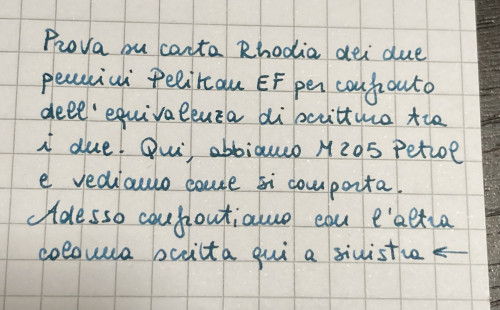 Prova su carta Rhodia dei due
pennini Pelikan EF per confronto
dell'equivalenza di scrittura tra
i due. Qui, abbiamo M205 Petrol
e vediamo come si comporta.
Adesso confrontiamo con l'altra
colonna scritta qui a sinistra ←